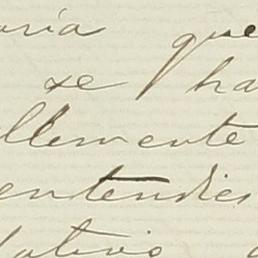 aria que
se ha
llemente
entendies
lativo